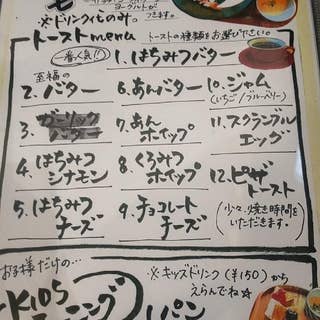 ヨーグルトが
つきます。
※ドリンクもの み。
トーストmenu
トーストの種類をお選びください。
一番人気!!
1. はちみつバター
至福の
2. バター
3. ガーリックバター
4. はちみつ
シナモン
5. はちみつ
チーズ
6. あんバター
7. あん
ホイップ
8. くろみつ
ホイップ
9. チョコレート
チーズ
10. ジャム
(いちご/ブルーベリー)
11. スクランブル
エッグ
12. ピザ
トースト
(少々、焼き時間を
いただきます。)
お子様だけの…
KIDS
※キッズドリンク(¥150)から
えらんでね☆
パン